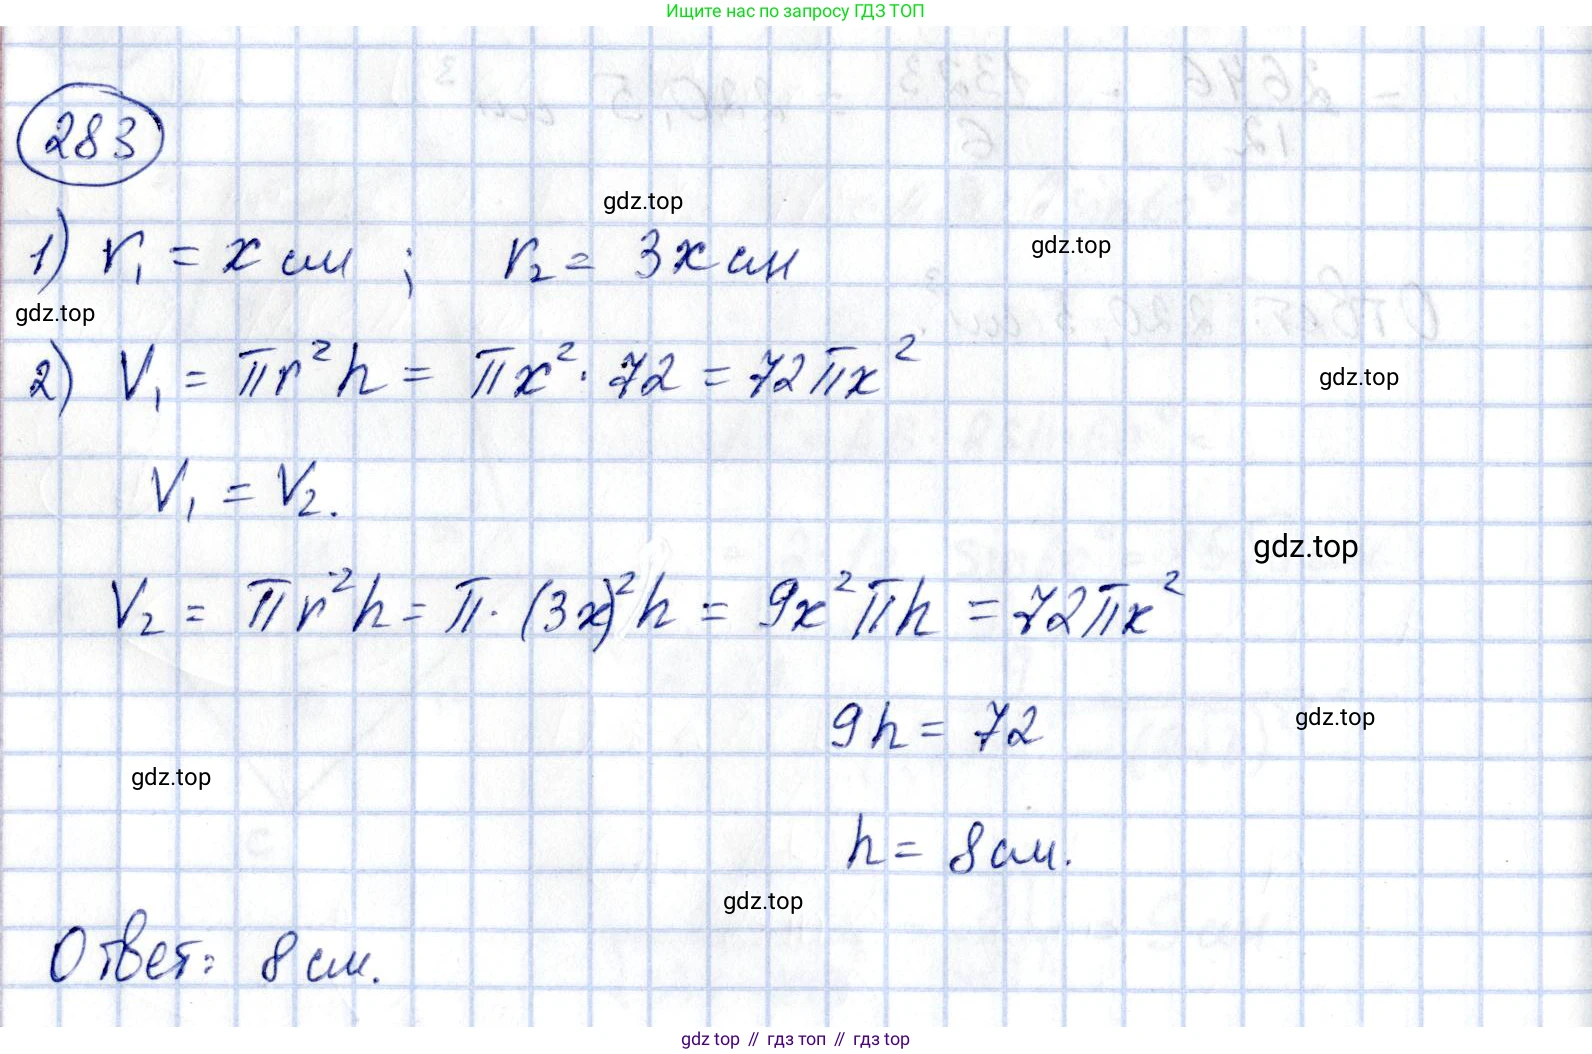 Ищите нас по запросу ГДЗ ТОП
283
gdz.top
1) r₁ = x см ; r₂ = 3x см
gdz.top
gdz.top
2) V₁ = πr²h = πx² · 72 = 72πx²
gdz.top
V₁ = V₂.
gdz.top
V₂ = πr²h = π · (3x)²h = 9x²πh = 72πx²
9h = 72
gdz.top
gdz.top
h = 8 см.
gdz.top
Ответ: 8 см.
gdz top // гдз топ // гдз top